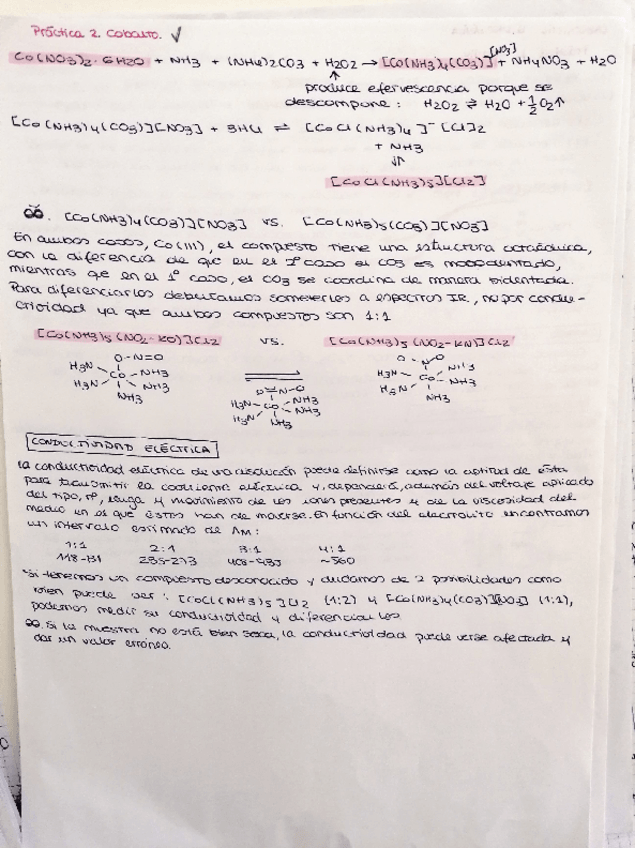 Práctica 2. Cobalto. ✓
Co(NO3)2·6H2O + NH3 + (NH4)2CO3 + H2O2 → [Co(NH3)4(CO3)][NO3] + NH4NO3 + H2O
produce efervescencia porque se
descompone: H2O2 ⇌ H2O + 1/2 O2↑
[Co(NH3)4(CO3)][NO3] + 3HCl ⇌ [CoCl(NH3)4]⁻[Cl]2
+ NH3
[CoCl(NH3)5][Cl2]
[Co(NH3)4(CO3)][NO3] vs. [Co(NH3)5(CO3)][NO3]
En ambos casos, Co(III), el compuesto tiene una estructura octaédrica,
con la diferencia de que en el 2º caso el CO3 es monodentado,
mientras que en el 1º caso, el CO3 se coordina de manera bidentada.
Para diferenciarlos deberíamos someterlos a espectros IR, no por condu-
ctividad ya que ambos compuestos son 1:1
[Co(NH3)5(NO2-KO)]Cl2 vs. [Co(NH3)5(NO2-KN)]Cl2
O-N=O
H3N Co NH3
H3N NH3
NH3
O=N-O
H3N-Co-NH3
H3N NH3
NH3
O-N-O
H3N Co NH3
H3N NH3
NH3
CONDUCTIVIDAD ELÉCTRICA
La conductividad eléctrica de una disolución puede definirse como la aptitud de ésta
para transmitir la corriente eléctrica y, dependerá, además del voltaje aplicado
del tipo, nº, carga y movimiento de los iones presentes y de la viscosidad del
medio en el que éstos han de moverse. En función del electrolito encontramos
un intervalo estimado de ΛM:
1:1 2:1 3:1 4:1
118-131 235-273 408-435 ~560
*Si tenemos un compuesto desconocido y dudamos de 2 posibilidades como
bien puede ser: [CoCl(NH3)5]Cl2 (1:2) y [Co(NH3)4(CO3)][NO3] (1:1),
podemos medir su conductividad y diferenciarlos.
Si la muestra no está bien seca, la conductividad puede verse afectada y
dar un valor erróneo.